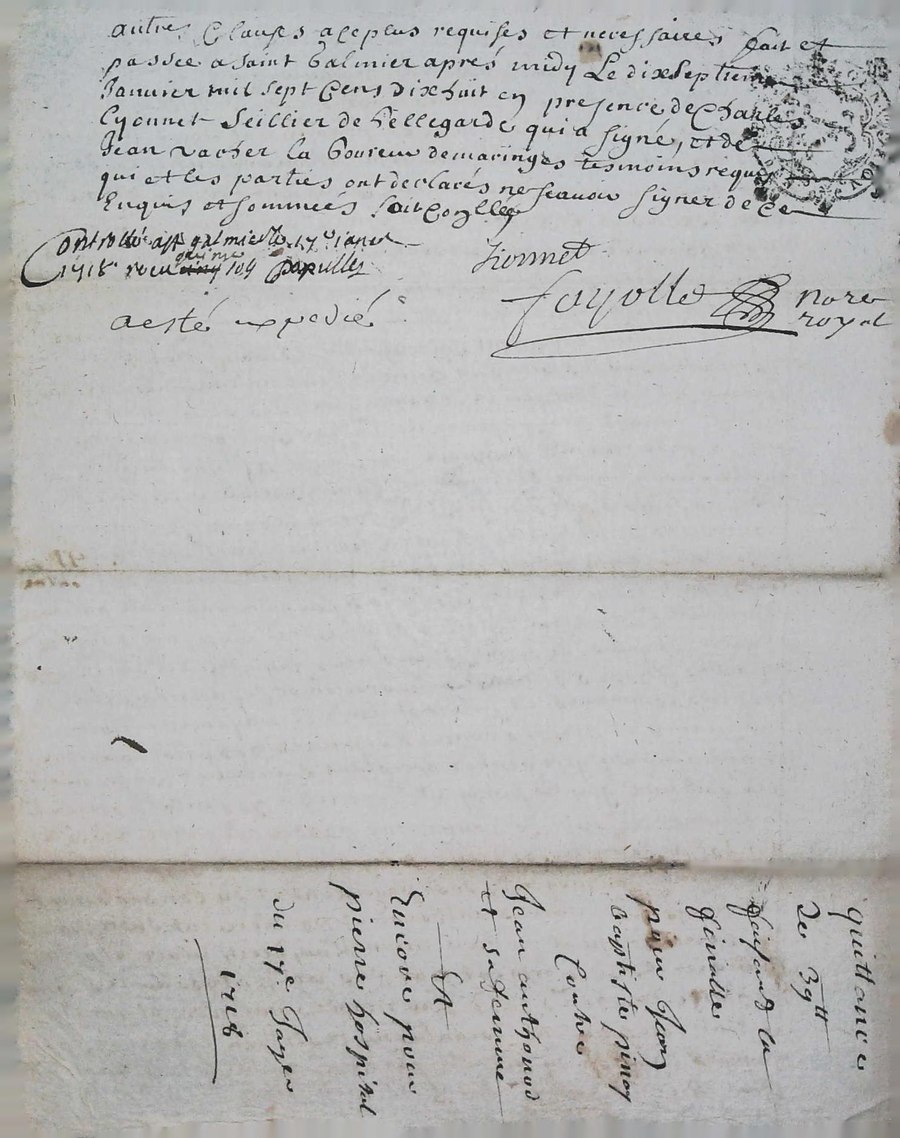 autres Clauses aceplus requises et necessaires fait et
passée a Saint Galmier aprés midy Le dixseptieme
Janvier mil sept Cens dixhuit en presence de Charles
Lyonnet Seillier de bellegarde qui a signé, et de
Jean vacher laboureur demaringes tesmoins requis
qui et les parties ont declarés ne scavoir signer de ce
Enquis et sommées
Controllé a st galmier le 17e janer
1718 receu quinze sols
Lionnet
fayolle nore
royal
a esté expedié
quittance
De 39tt
faisand la
finalle
pour Jean
baptiste pinay
Contre
Jean
et sa femme
Et
Encore pour
pierre hospital
du 17e Janer
1718